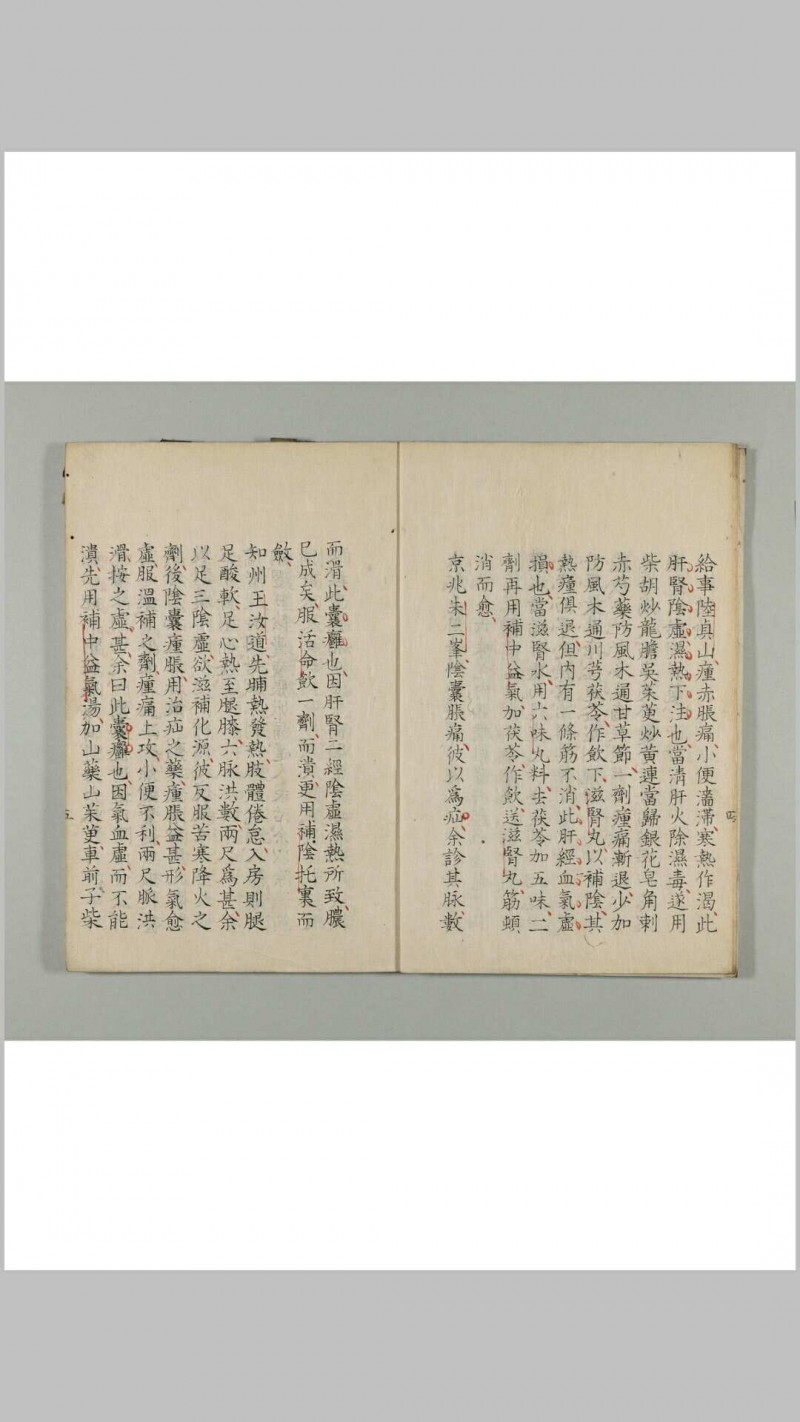 給事陸真山、瘇赤脹痛、小便濇滯、寒熱作渴、此
肝腎陰虚、濕熱下注也、當清肝火除濕毒、遂用
柴胡炒龍膽吳茱萸炒黄連當歸銀花皂角刺
赤芍藥防風木通甘草節、一劑瘇痛漸退、少加
防風木通川芎茯苓、作飲下、滋腎丸以補陰、其
熱瘇俱退、但内有一條筋不消、此肝經血氣虚
損也、當滋腎水、用六味丸料、去茯苓加五味、二
劑再用補中益氣加茯苓、作飲送、滋腎丸、筋頓
消而愈、
京兆朱二峯、陰囊脹痛、彼以爲疝、余診其脉數
而滑、此囊癰也、因肝腎二經陰虚濕熱所致、膿
已成矣、服活命飲一劑、而潰、更用補陰托裏而
斂、
知州王汝道、先晡熱發熱、肢體倦怠、入房則腿
足酸軟、足心熱至腿膝、六脉洪數、兩尺爲甚、余
以足三陰虚、欲滋補化源、彼反服苦寒降火之
劑、後陰囊瘇脹、用治疝之藥、瘇脹益甚、形氣愈
虚、服溫補之劑、瘇痛上攻、小便不利、兩尺脈洪
滑、按之虚甚、余曰此囊癰也、因氣血虚、而不能
潰、先用補中益氣湯、加山藥山茱萸、車前子、柴
四
五